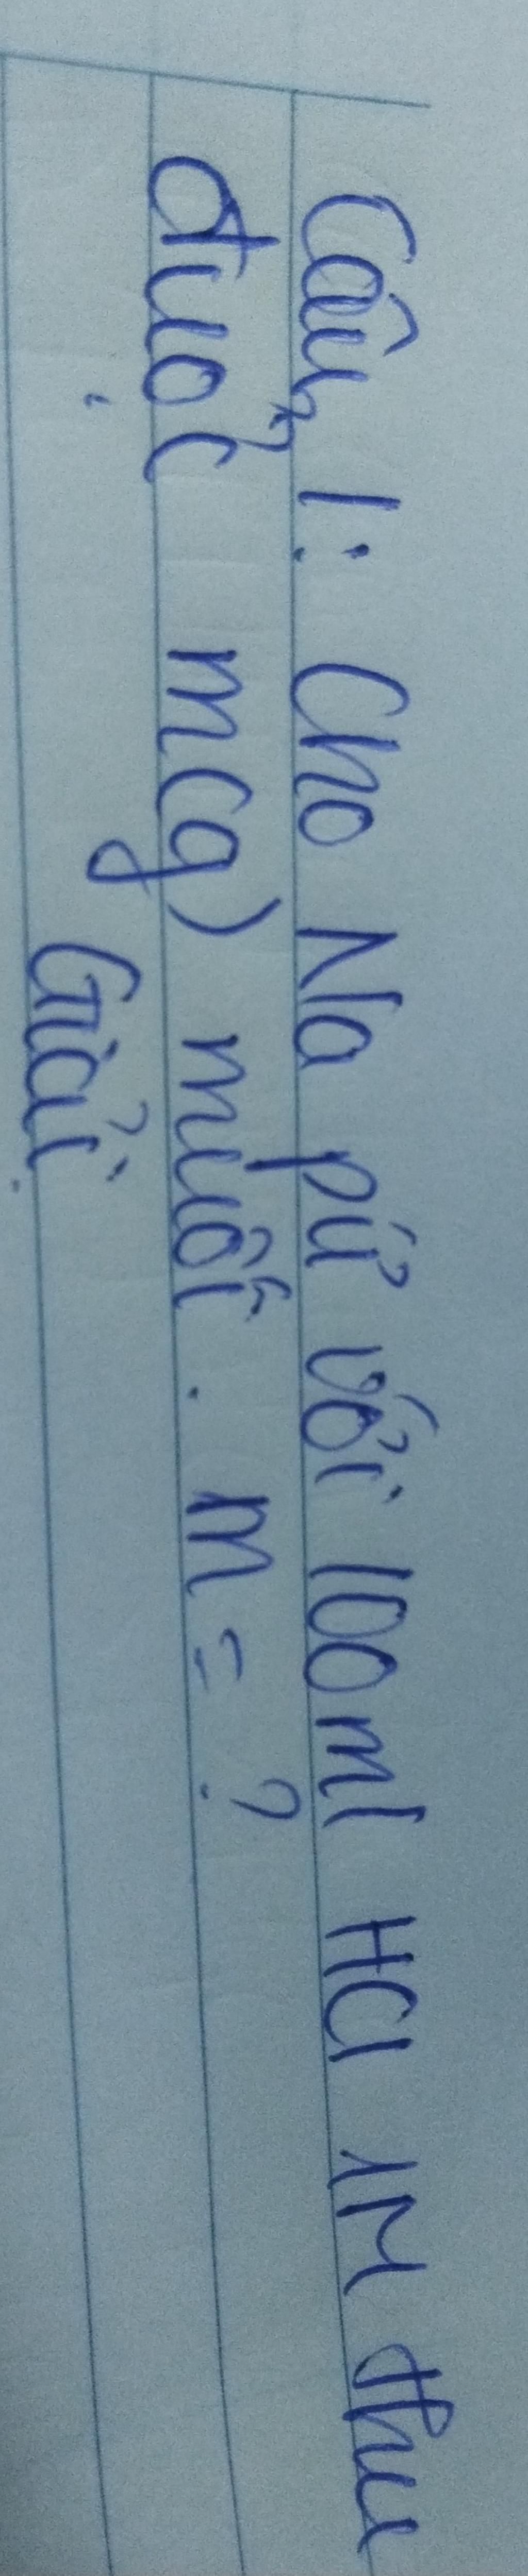 Câu 1: Cho Na pứ với 100ml HCl 1M thu
được m(g) muối. m = ?
Giải